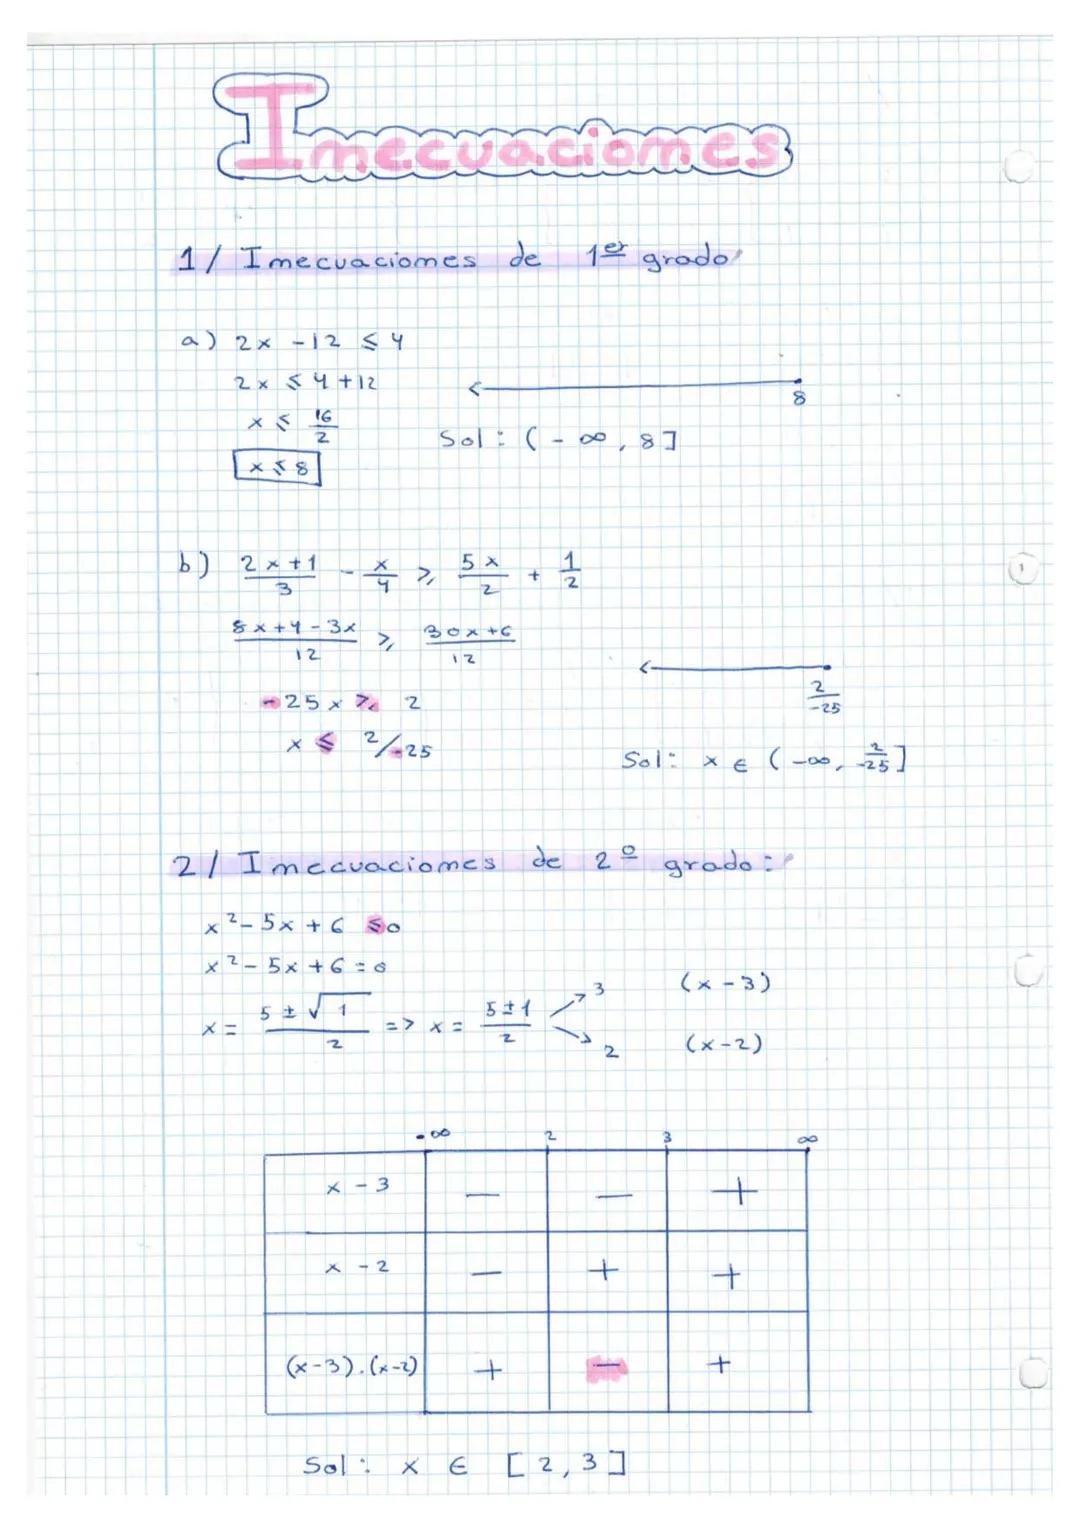 Inecuaciones
1/ Inecuaciones de 1er grado
a) 2x - 12 ≤ 4
2x ≤ 4 + 12
x ≤ 16/2
x ≤ 8
8
Sol: (-∞, 8]
b) (2x+1)/3 - x/4 ≥ 5x/2 + 1/2
(8x+4-3x)/12 ≥ (30x+6)/12
-25x ≥ 2
x ≤ 2/-25
2/-25
Sol: x ∈ (-∞, 2/-25]
2/ Inecuaciones de 2º grado:
x² - 5x + 6 ≤ 0
x² - 5x + 6 = 0
x = (5 ± √1)/2 => x = (5±1)/2
3 (x-3)
2 (x-2)
-∞ 2 3 ∞
x - 3 — — +
x - 2 — + +
(x-3).(x-2) + — +
Sol: x ∈ [2,3]